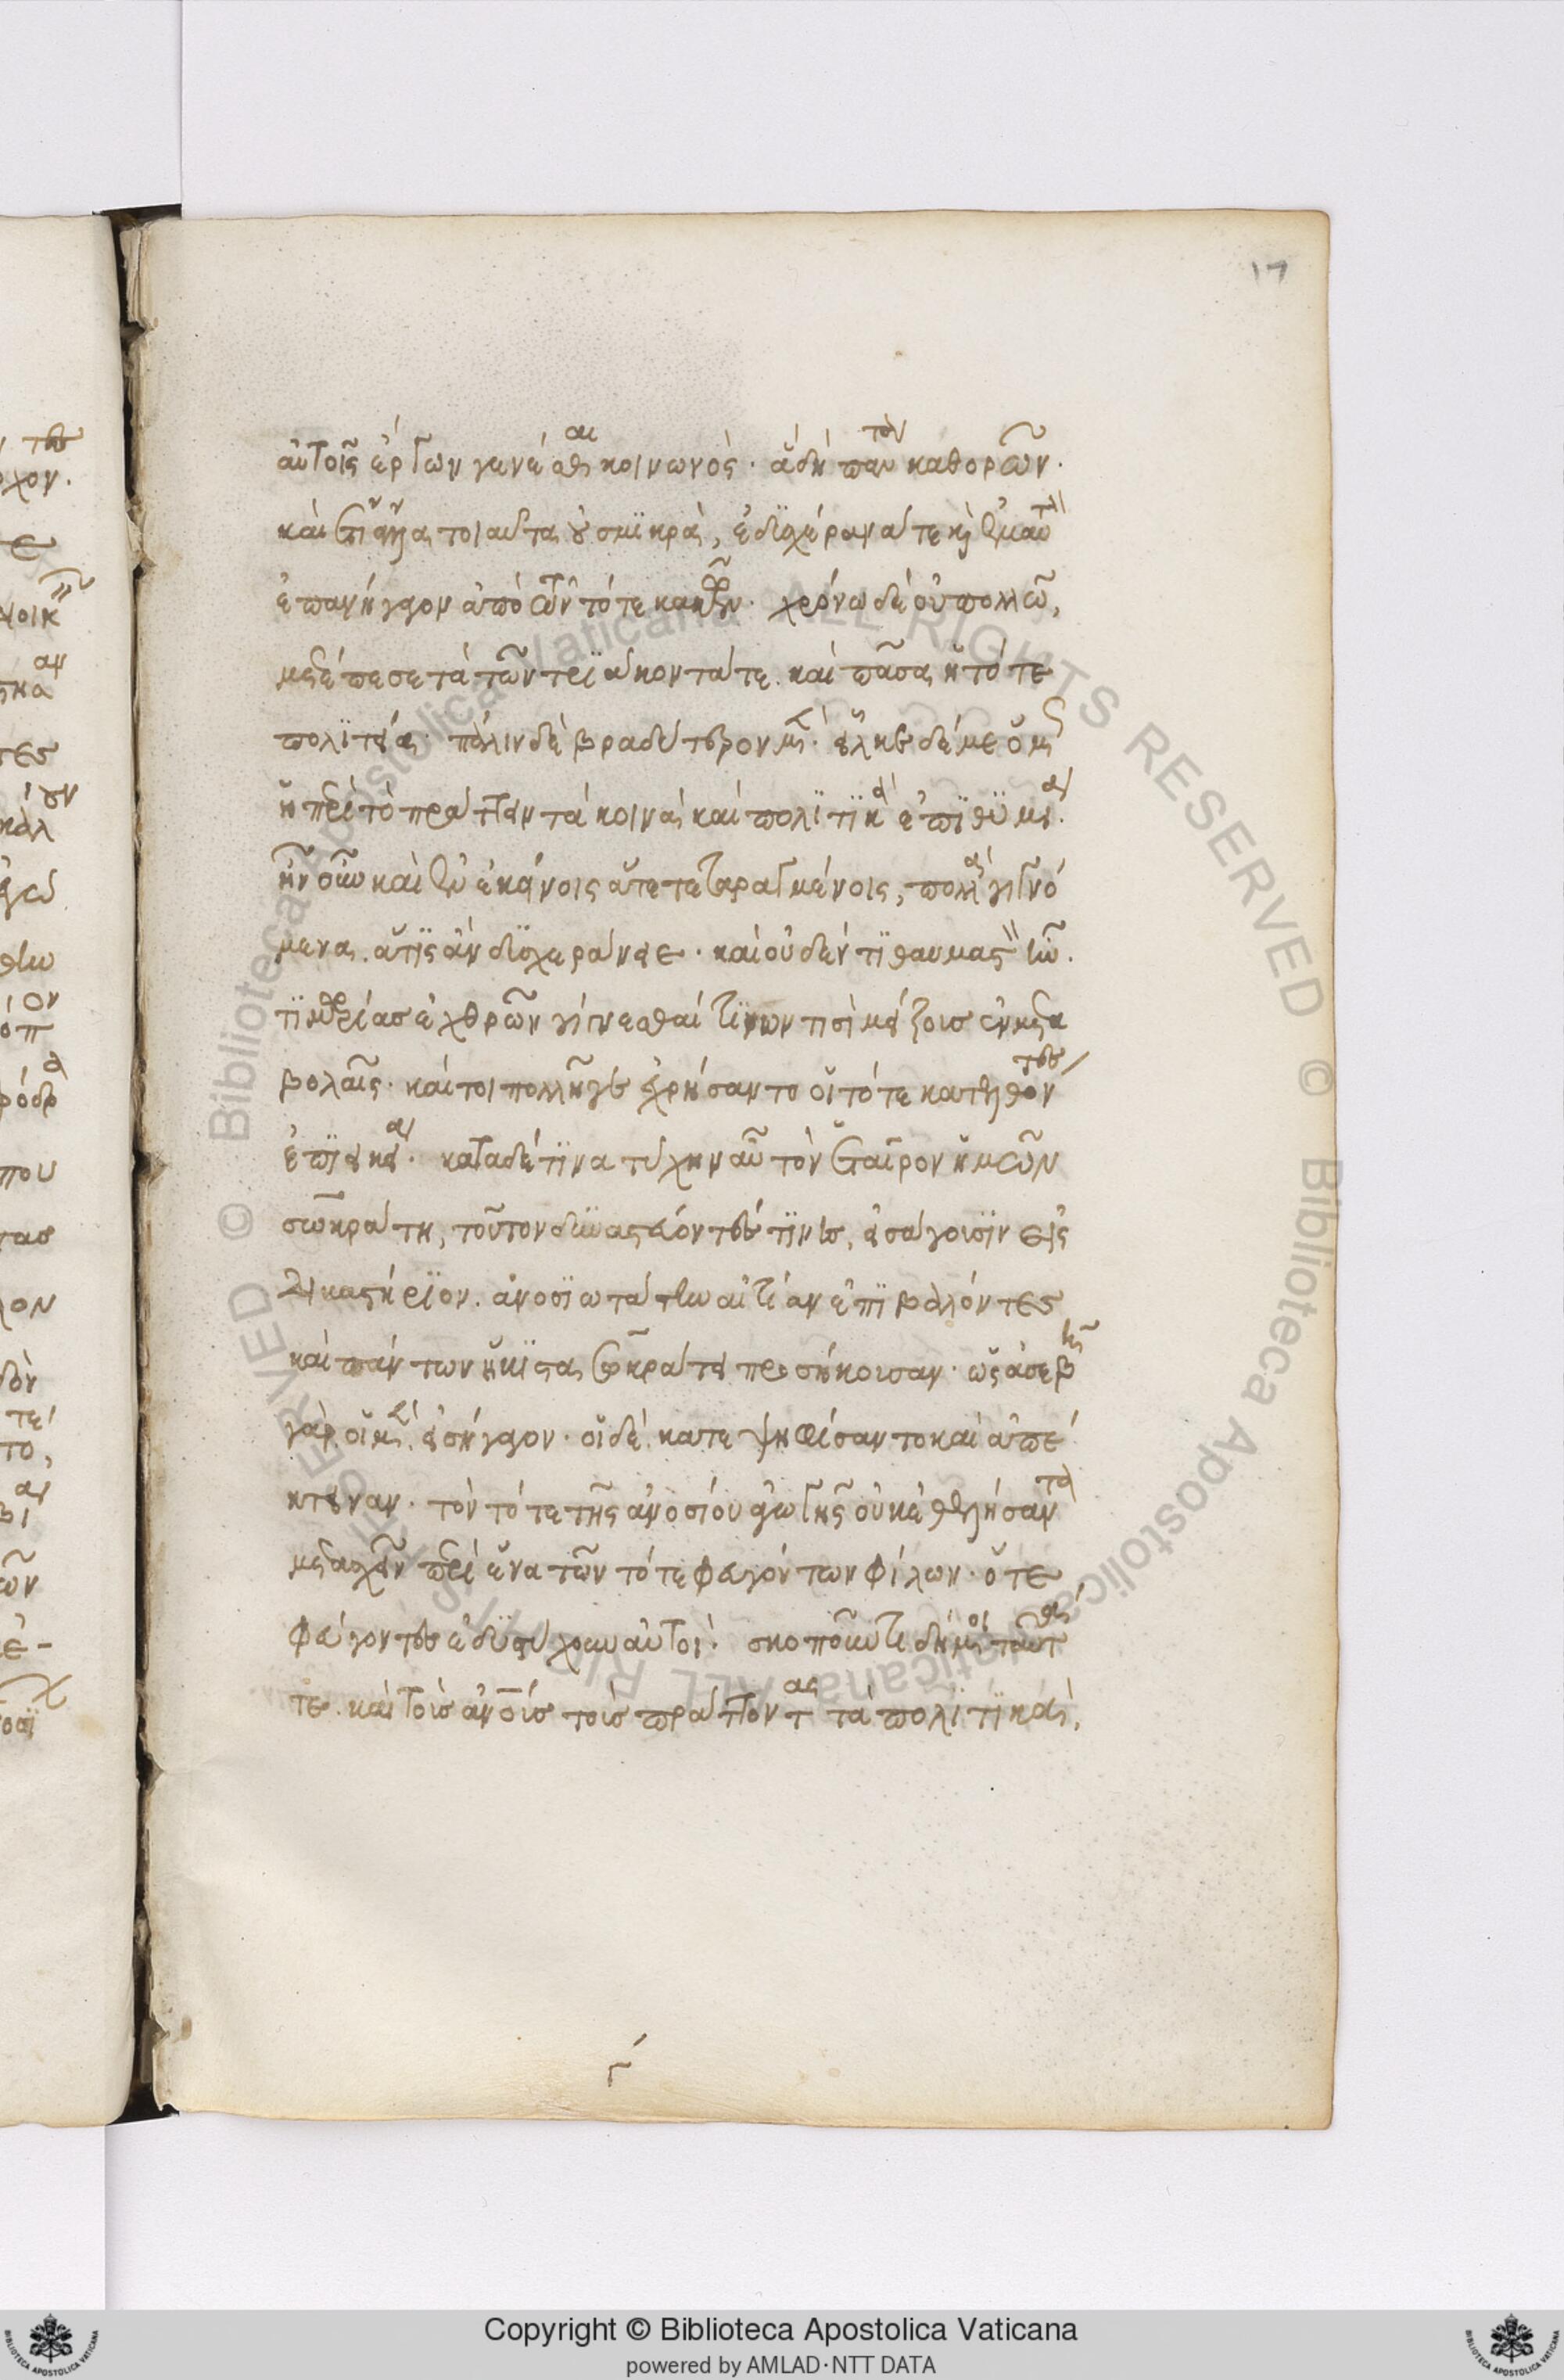 αὐτοῖς ἔργων γενέσθαι κοινωνός· ἃ δὴ πάντα καθορῶν·
καὶ εἴ τιν' ἄλλα τοιαῦτα οὐ σμικρά, ἐδυσχέρανά τε καὶ ἐμαυτὸν
ἐπανήγαγον ἀπὸ τῶν τότε κακῶν· χρόνω δὲ οὐ πολλῶ,
μετέπεσε τὰ τῶν τριάκοντά τε. καὶ πᾶσα ἡ τότε
πολιτεία· πάλιν δὲ βραδύτερον μέν· εἷλκεν δέ με ὅμως
ἡ περὶ τὸ πράττειν τὰ κοινὰ καὶ πολιτικὰ ἐπιθυμία.
ἦν οὖν καὶ ἐν ἐκείνοις ἅτε τεταραγμένοις, πολλὰ γιγνό
μενα. ἅ τις ἂν δυσχεράνειε· καὶ οὐδέν τι θαυμαστὸν ἦν.
τιμωρίας ἐχθρῶν γίγνεσθαί τινων τισὶ μείζους ἐν μετα
βολαῖς· καίτοι πολλῆ γε ἐχρήσαντο οἱ τότε κατελθόντες
ἐπιεικεία· κατὰ δέ τινα τύχην αὖ τὸν ἑταῖρον ἡμῶν
σωκράτη, τοῦτον δυναστεύοντές τινες, εἰσάγουσιν εἰς
δικαστήριον. ἀνοσιωτάτην αἰτίαν ἐπιβαλόντες
καὶ πάντων ἥκιστα σωκράτει προσήκουσαν· ὡς ἀσεβῆ
γὰρ. οἱ μὲν. εἰσήγαγον· οἱ δὲ. κατεψηφίσαντο καὶ ἀπέ
κτειναν· τὸν τότε τῆς ἀνοσίου ἀγωγῆς οὐκ ἐθελήσαντα
μετασχεῖν περὶ ἕνα τῶν τότε φευγόντων φίλων· ὅτε
φεύγοντες ἐδυστύχουν αὐτοί· σκοποῦντι δή μοι ταῦτά
τε. καὶ τοὺς ἀνθρώπους τοὺς πράττοντας τὰ πολιτικά,
γ
17
Copyright © Biblioteca Apostolica Vaticana
powered by AMLAD·NTT DATA